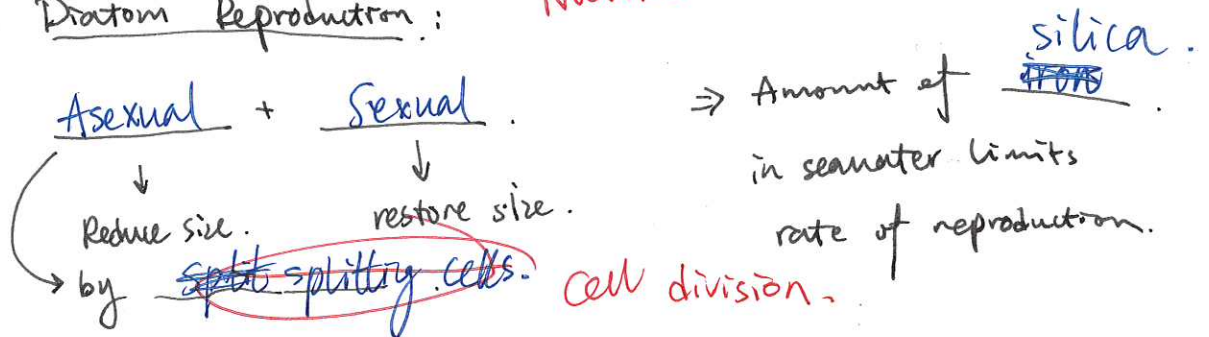 Diatom Reproduction :
Asexual + Sexual .
↓ ↓
Reduce size. restore size.
→ by split splitting cells. cell division.
⇒ Amount of iron silica .
in seawater limits
rate of reproduction.